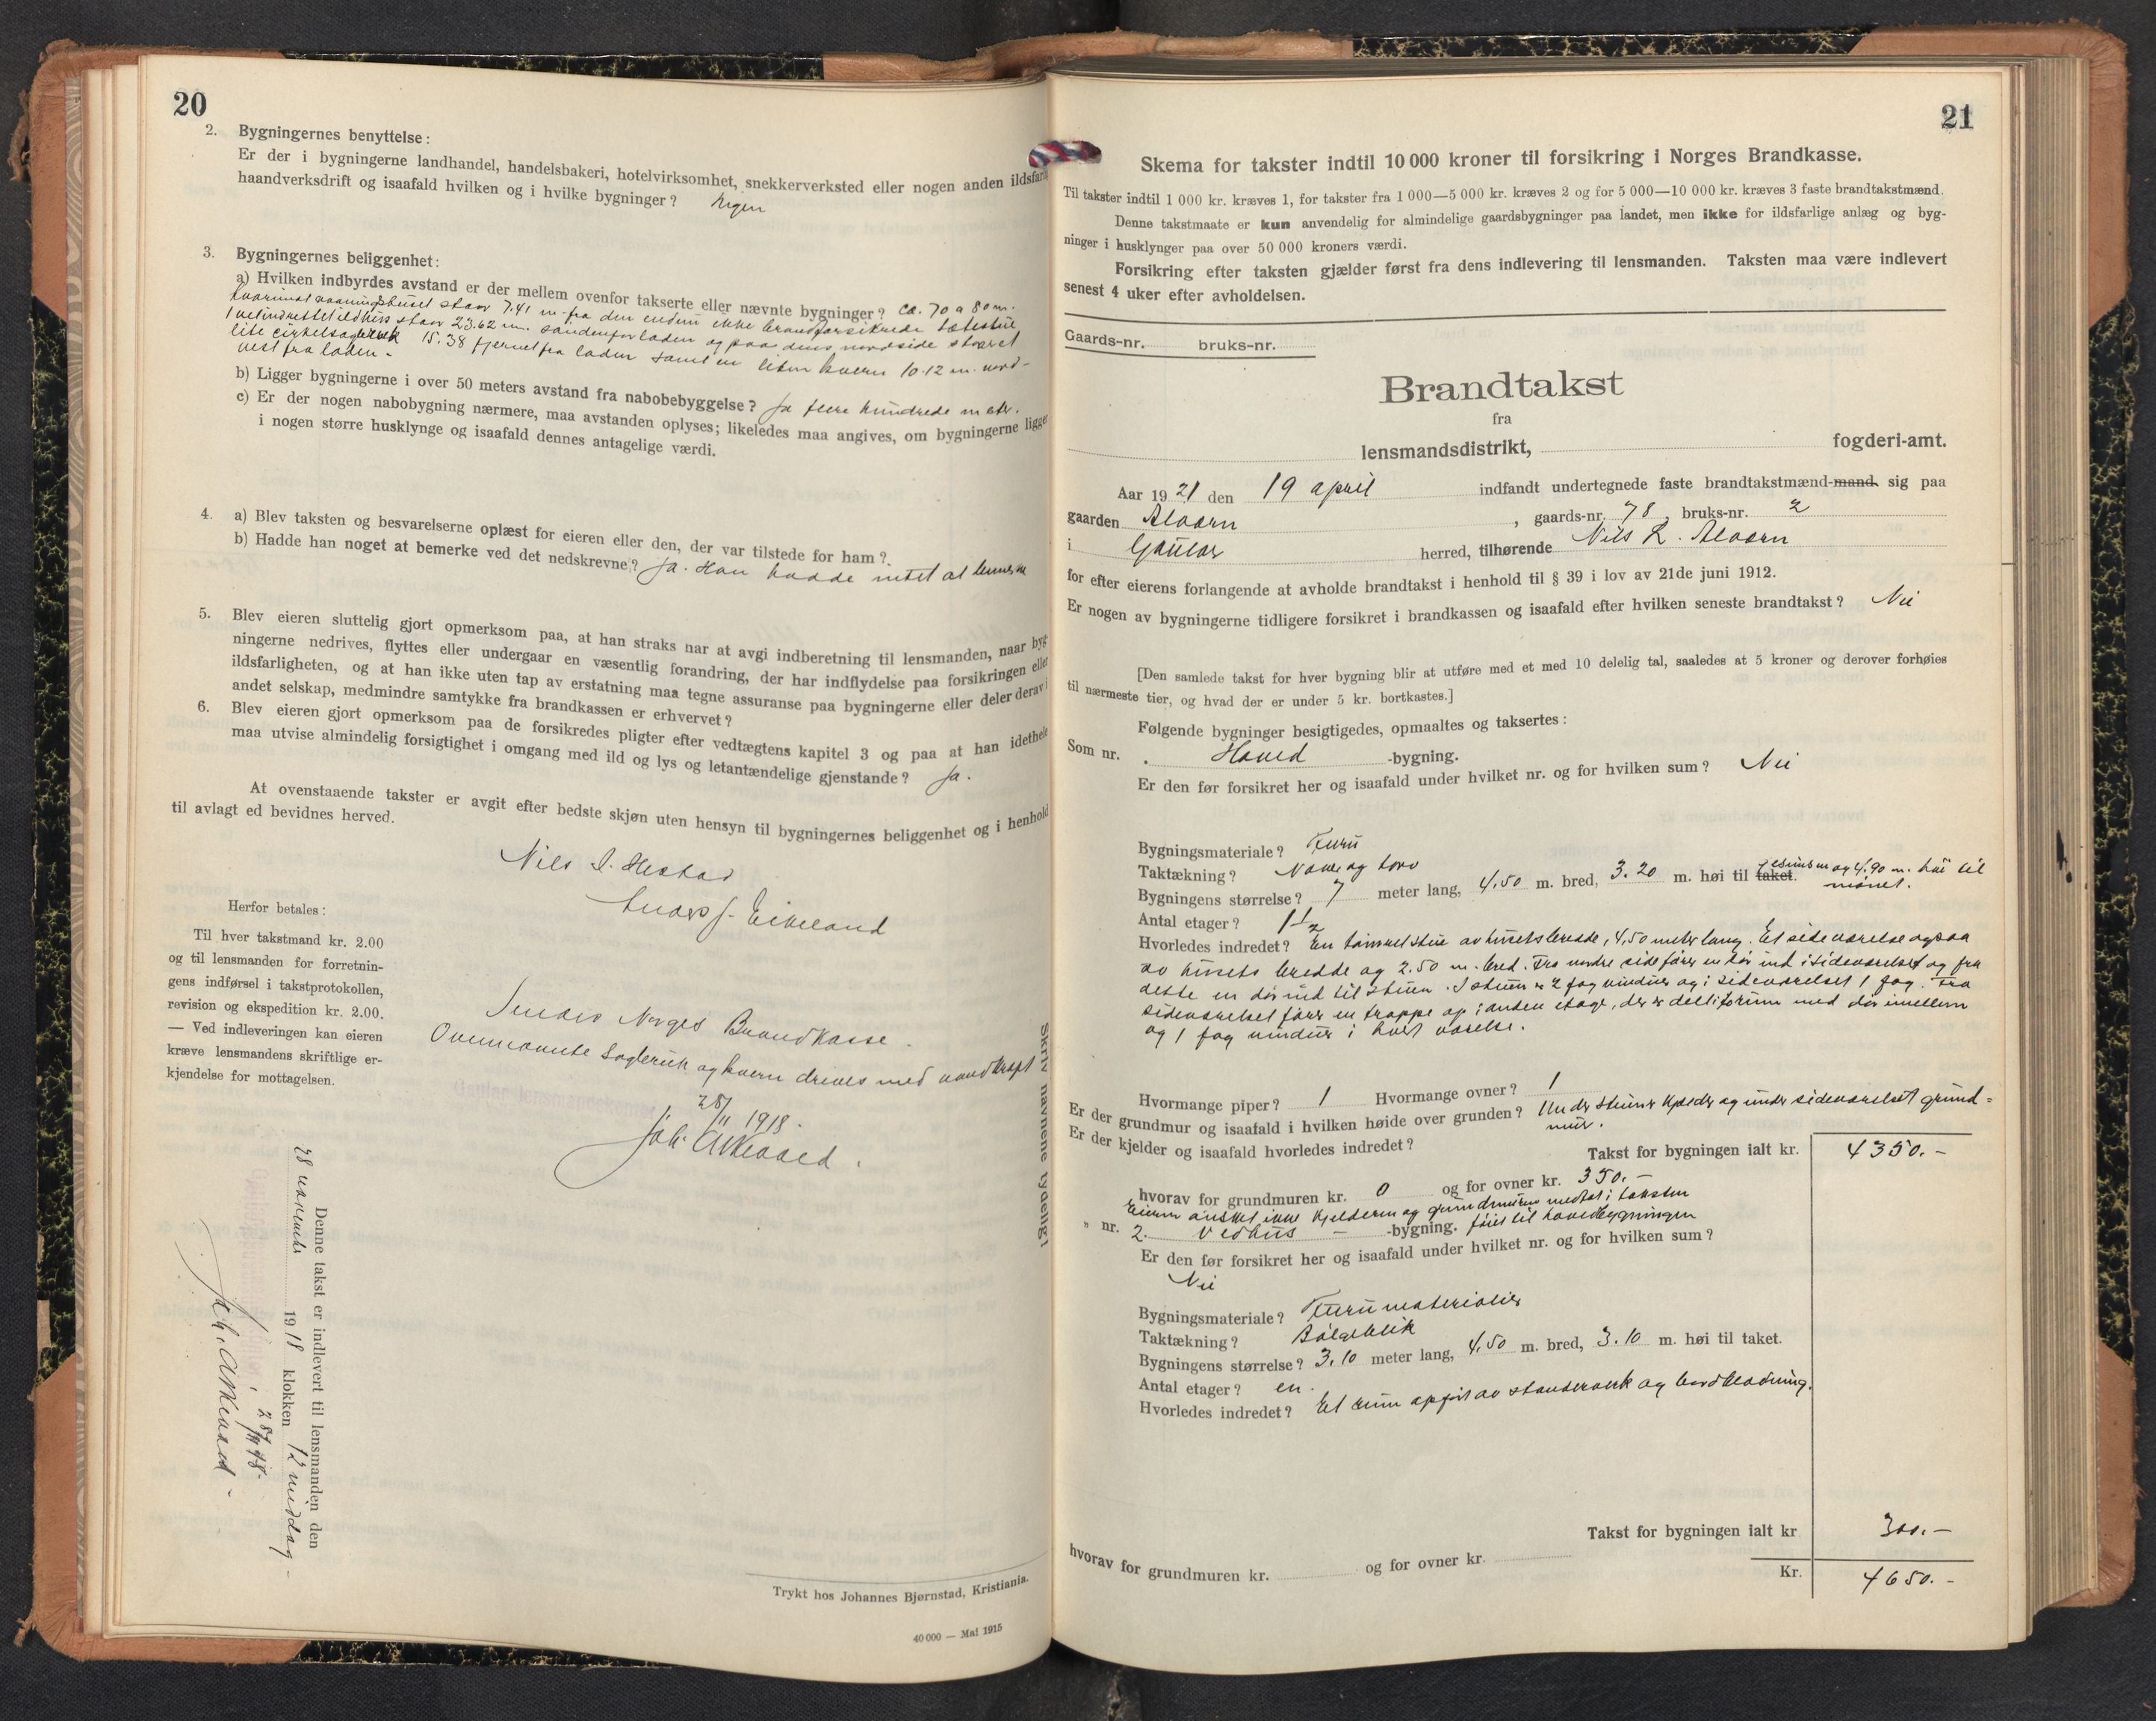 20
2. Bygningernes benyttelse:
Er der i bygningerne landhandel, handelsbakeri, hotelvirksomhet, snekkerverksted eller nogen anden ildsfarlig
haandverksdrift og isaafald hvilken og i hvilke bygninger? Ingen
3. Bygningernes beliggenhet:
a) Hvilken indbyrdes avstand er der mellem ovenfor takserte eller nævnte bygninger? ca. 70 a 80 m.
hvorimot vaaningshuset staar 7.41 m fra den endnu ikke brandforsikrede
1 velindrettet ildhus staar 23.62 m. søndenfor laden og paa dens nordside staaer et
lite cirkelsagbruk 15.38 fjernet fra laden samt en liten kvern 10-12 m. nord-
vest fra laden -
b) Ligger bygningerne i over 50 meters avstand fra nabobebyggelse? Ja flere hundrede meter.
c) Er der nogen nabobygning nærmere, maa avstanden oplyses; likeledes maa angives, om bygningerne ligger
i nogen større husklynge og isaafald dennes antagelige værdi.
4. a) Blev taksten og besvarelserne oplæst for eieren eller den, der var tilstede for ham?
b) Hadde han noget at bemerke ved det nedskrevne? Ja. Han hadde intet at bemerke
5. Blev eieren sluttelig gjort opmerksom paa, at han straks har at avgi indberetning til lensmanden, naar byg-
ningerne nedrives, flyttes eller undergaar en væsentlig forandring, der har indflydelse paa forsikringen eller
ildsfarligheten, og at han ikke uten tap av erstatning maa tegne assuranse paa bygningerne eller deler derav i
andet selskap, medmindre samtykke fra brandkassen er erhvervet?
6. Blev eieren gjort opmerksom paa de forsikredes pligter efter vedtægtens kapitel 3 og paa at han idethele
maa utvise almindelig forsigtighet i omgang med ild og lys og letantændelige gjenstande? Ja.
At ovenstaaende takster er avgit efter bedste skjøn uten hensyn til bygningernes beliggenhet og i henhold
til avlagt ed bevidnes herved.
Nils I. Hestad
Anders J. Eikeland
Herfor betales:
Til hver takstmand kr. 2.00
og til lensmanden for forretnin-
gens indførsel i takstprotokollen,
revision og ekspedition kr. 2.00.
— Ved indleveringen kan eieren
kræve lensmandens skriftlige er-
kjendelse for mottagelsen.
Sendes Norges Brandkasse.
Ovennævnte Sagbruk og kvern drives med vandkraft
28/11 1918.
Denne takst er indlevert til lensmanden den
28 november 1918 klokken 12 middag -
28/11 18.
Skriv navnene tydelig!
Trykt hos Johannes Bjørnstad, Kristiania.
40 000 — Mai 1915
21
Skema for takster indtil 10 000 kroner til forsikring i Norges Brandkasse.
Til takster indtil 1 000 kr. kræves 1, for takster fra 1 000—5 000 kr. kræves 2 og for 5 000—10 000 kr. kræves 3 faste brandtakstmænd.
Denne takstmaate er kun anvendelig for almindelige gaardsbygninger paa landet, men ikke for ildsfarlige anlæg og byg-
ninger i husklynger paa over 50 000 kroners værdi.
Forsikring efter taksten gjælder først fra dens indlevering til lensmanden. Taksten maa være indlevert
senest 4 uker efter avholdelsen.
Gaards-nr. bruks-nr.
Brandtakst
fra
lensmandsdistrikt, fogderi-amt.
Aar 1921 den 19 april indfandt undertegnede faste brandtakstmænd-mand sig paa
gaarden Alvorn, gaards-nr. 78, bruks-nr. 2
i Gaular herred, tilhørende Nils L. Alvorn
for efter eierens forlangende at avholde brandtakst i henhold til § 39 i lov av 21de juni 1912.
Er nogen av bygningerne tidligere forsikret i brandkassen og isaafald efter hvilken seneste brandtakst? Nei
[Den samlede takst for hver bygning blir at utføre med et med 10 delelig tal, saaledes at 5 kroner og derover forhøies
til nærmeste tier, og hvad der er under 5 kr. bortkastes.]
Følgende bygninger besigtigedes, opmaaltes og taksertes:
Som nr. Hoved -bygning.
Er den før forsikret her og isaafald under hvilket nr. og for hvilken sum? Nei
Bygningsmateriale? Furu
Taktækning? Næver og torv
Bygningens størrelse? 7 meter lang, 4.50 m. bred, 3.20 m. høi til taket. gesimsen og 4.90 m. høi til
mønet.
Antal etager? 1 1/2
Hvorledes indredet? En tømmerstue av husets bredde, 4,50 meter lang. Et sideværelse ogsaa
av husets bredde og 2.50 m. bred. Fra nordre side fører en dør ind i sideværelset og fra
dette en dør ind til stuen. I stuen er 2 fag vinduer og i sideværelset 1 fag. Fra
sideværelset fører en trappe op i anden etage, der er delt i forum med dør imellem
og 1 fag vinduer i hvert værelse.
Hvormange piper? 1 Hvormange ovner? 1
Er der grundmur og isaafald i hvilken høide over grunden? Under stuen kjelder og under sideværelset grund-
mur.
Er der kjelder og isaafald hvorledes indredet?
Takst for bygningen ialt kr. 4350.-
hvorav for grundmuren kr. 0 og for ovner kr. 350.-
Eieren ønsket ikke kjelderen og grundmuren medtat i taksten
" nr. 2. Vedhus - -bygning. føiet til hovedbygningen
Er den før forsikret her og isaafald under hvilket nr. og for hvilken sum?
Nei
Bygningsmateriale? Furumaterialier
Taktækning? Bølgeblik
Bygningens størrelse? 3.10 meter lang, 4.50 m. bred, 3.10 m. høi til taket.
Antal etager? en.
Hvorledes indredet? Et rum opført av stenderverk og bordklædning.
Takst for bygningen ialt kr 300.-
hvorav for grundmuren kr. og for ovner kr.
Kr. 4650.-